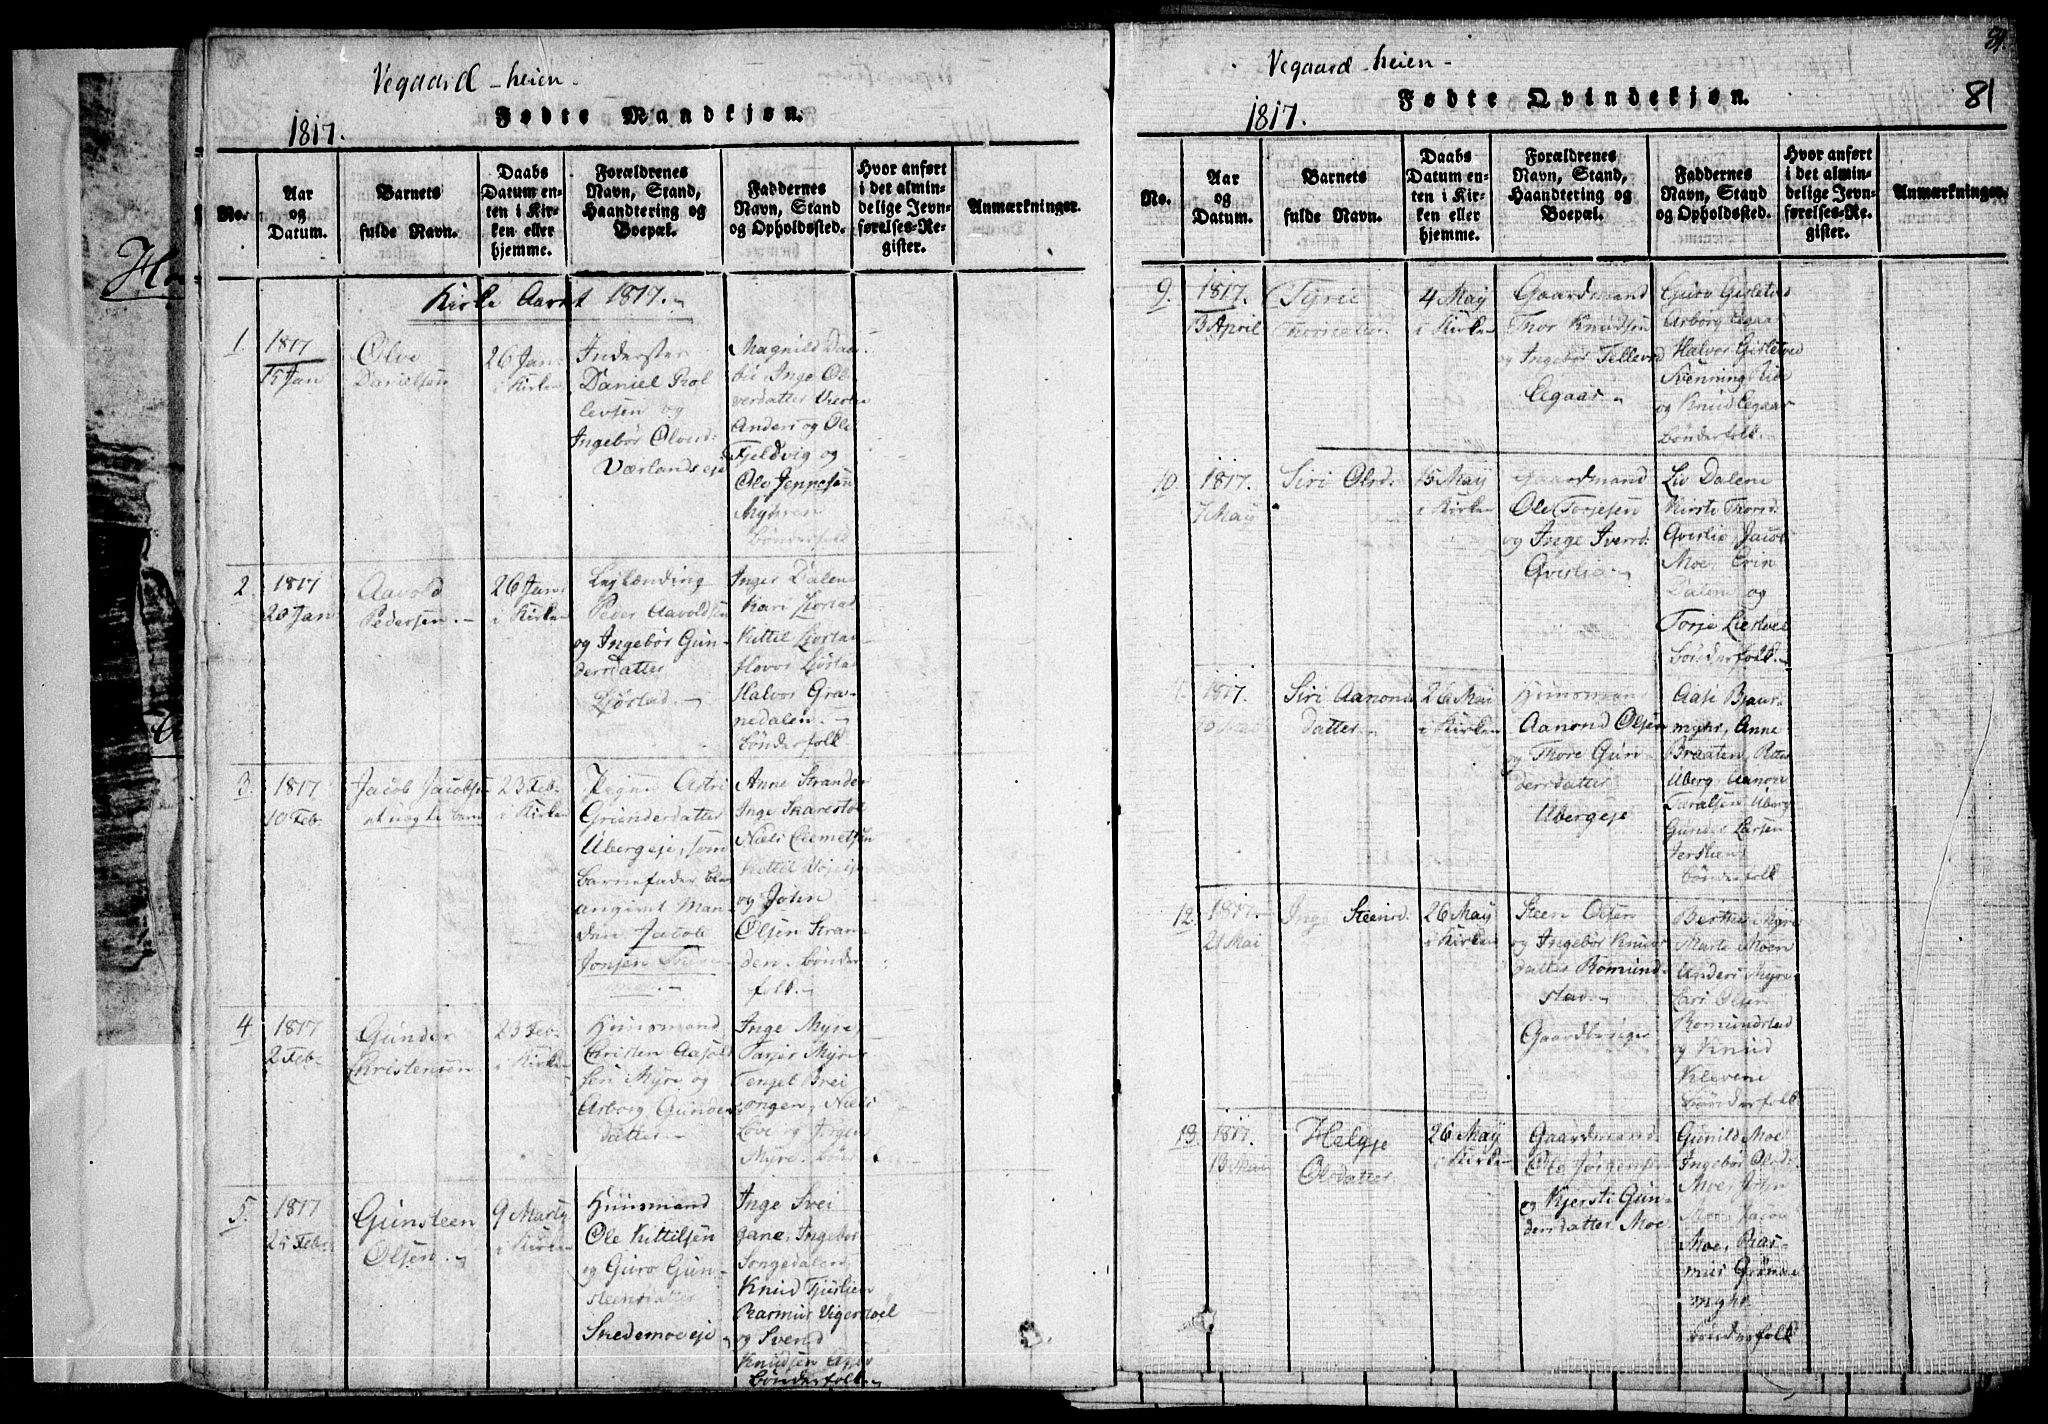 Vegaard-heien-
Fødte Mandkjøn.
1817.
No.
Aar
og
Datum.
Barnets
fulde Navn.
Daabs
Datum en-
ten i Kir-
ken eller
hjemme.
Forældrenes
Navn, Stand,
Haandtering og
Boepæl.
Faddernes
Navn, Stand
og Opholdssted.
Hvor anført
i det almin-
delige Jevn-
førelses-Re-
gister.
Anmærkninger.
Kirke Aaret 1817.-
1.
1817
15 Jan
Olve
Danielsen
26 Jan.
i Kirken
Inderster
Daniel Rol
levsen og
Ingebør Olverd:
Værlandseje
Magnild
Inge Ol
verdatter
Anders og Ole
Fjeldvig og
Ole Jeppesen
Myhren
bønderfolk
2.
1817
20 Jan
Aavold
Pedersen.-
26 Jan.
i Kirken
Lejlænding
Peder Aavoldsen
og Ingebør Gun-
dersdatter
Ljøstad.-
Inger Dalene
Kari Ljøstad
Kittil Ljøstad
Hovor Ljøstad
Halvor Gra-
nedalen.-
bønderfolk
3
1817
10 Feb.
Jacob Jacobsen
et uægte barn
23 Feb.
i Kirken
Pigen Astri
Gundersdatter
Ubergeje, som
barnefader blev
angivet Man-
den Jacob
Jonsen
Anne Stranden
Inge Skarestoe
Niels Clemetsen
Kittel
og John
Olsen Stran-
den. bønder
folk.-
4
1817
2 Feb.
Gunder
Christensen
23 Feb.
i Kirken
Huusmand
Christen
Myre og
Aarborg Gunders
datter.-
Inge Myre,
Tarjer Myre
Tengel Brei
songen, Niels
Løve og Jørgen
Myre. bønd
5.
1817
25 Feb.
Gunsteen
Olsen.-
9 Marty
i Kirken
Huusmand
Ole Kittilsen
og Guro Gun-
steensdatter
Skedemoeeje
Inge Svei
gane, Ingebør
Songedalen,
Knud Tjuslien
Rasmus Vigerstoel
og Svend
Knudsen
bønderfolk.-
Vegaard-heien-
81
Fødte Qvindekjøn.
1817.
No.
Aar
og
Datum.
Barnets
fulde Navn.
Daabs
Datum en-
ten i Kir-
ken eller
hjemme.
Forældrenes
Navn, Stand,
Haandtering og
Boepæl.
Faddernes
Navn, Stand
og Opholdssted.
Hvor anført
i det almin-
delige Jevn-
førelses-Re-
gister.
Anmærkninger.
9.
1817.
13 April
Tyrie
Thorsdatter
4 May
i Kirken
Gaardmand
Thor Knudsen
og Ingebør Tellevsd
Egaas.-
Guro Gisletad
Aarborg Egaas
Halvor Gisletad
Svenning Lie
og Knud Egaas
bønderfolk.-
10
1817.
7 May
Siri Olsd.
15 May
i Kirken
Gaardmand
Ole Torjesen
og Inge Iversd:
Qvistie.-
Liv Dalene
Kirsti Thorsd:
Qvistie, Jacob
Moe, Erin
Dalene og
Torje Liestoel
bønderfolk.-
11.
1817.
10 Mai
Siri Aanonds
datter.-
26 Mai
i Kirken
Huusmand
Aanond Olsen
og Thore Gun
dersdatter
Ubergeje
Aase Bjaur-
myhr, Anne
Braaten, Peter
Uberg, Aanon
Taralsen Uberg
Gunder Larsen
bønderfolk
12.
1817.
21 Mai
Inge Steensd:
26 May
i Kirken
Steen Olsen
og Ingebør Knuds
datter Romund-
stad.-
Gaardbruger
Berthe Myre
Marte Moen
Anders Myre
Lars Olsen
Romundstad
og Knud
Klevene
bønderfolk
13.
1817.
13 Mai
Helgje
Olsdatter
26 May
i Kirken
Gaardmand
Ole Jørgens:
og Kjersti Gun-
dersdatter Moe
Gunild Moe
Ingebør Olsd:
Moe,
Moe, Jacob
Moe, Ras-
mus Grønne
myhr
bønderfolk